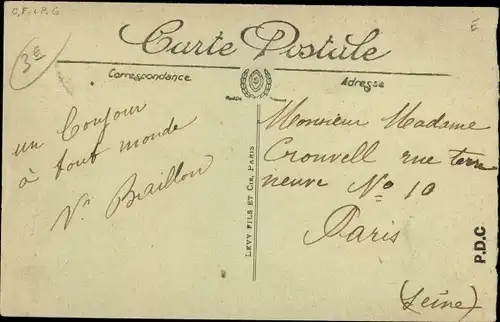 C.F. & P. G
E
3E
Carte Postale
Correspondance
Adresse
un Bonjour
à tout monde
Vr Braillon
LEVY FILS ET CIE, PARIS
Monsieur Madame
Crouvell rue terre
neuve No 10
Paris
(Seine)
P.D.C